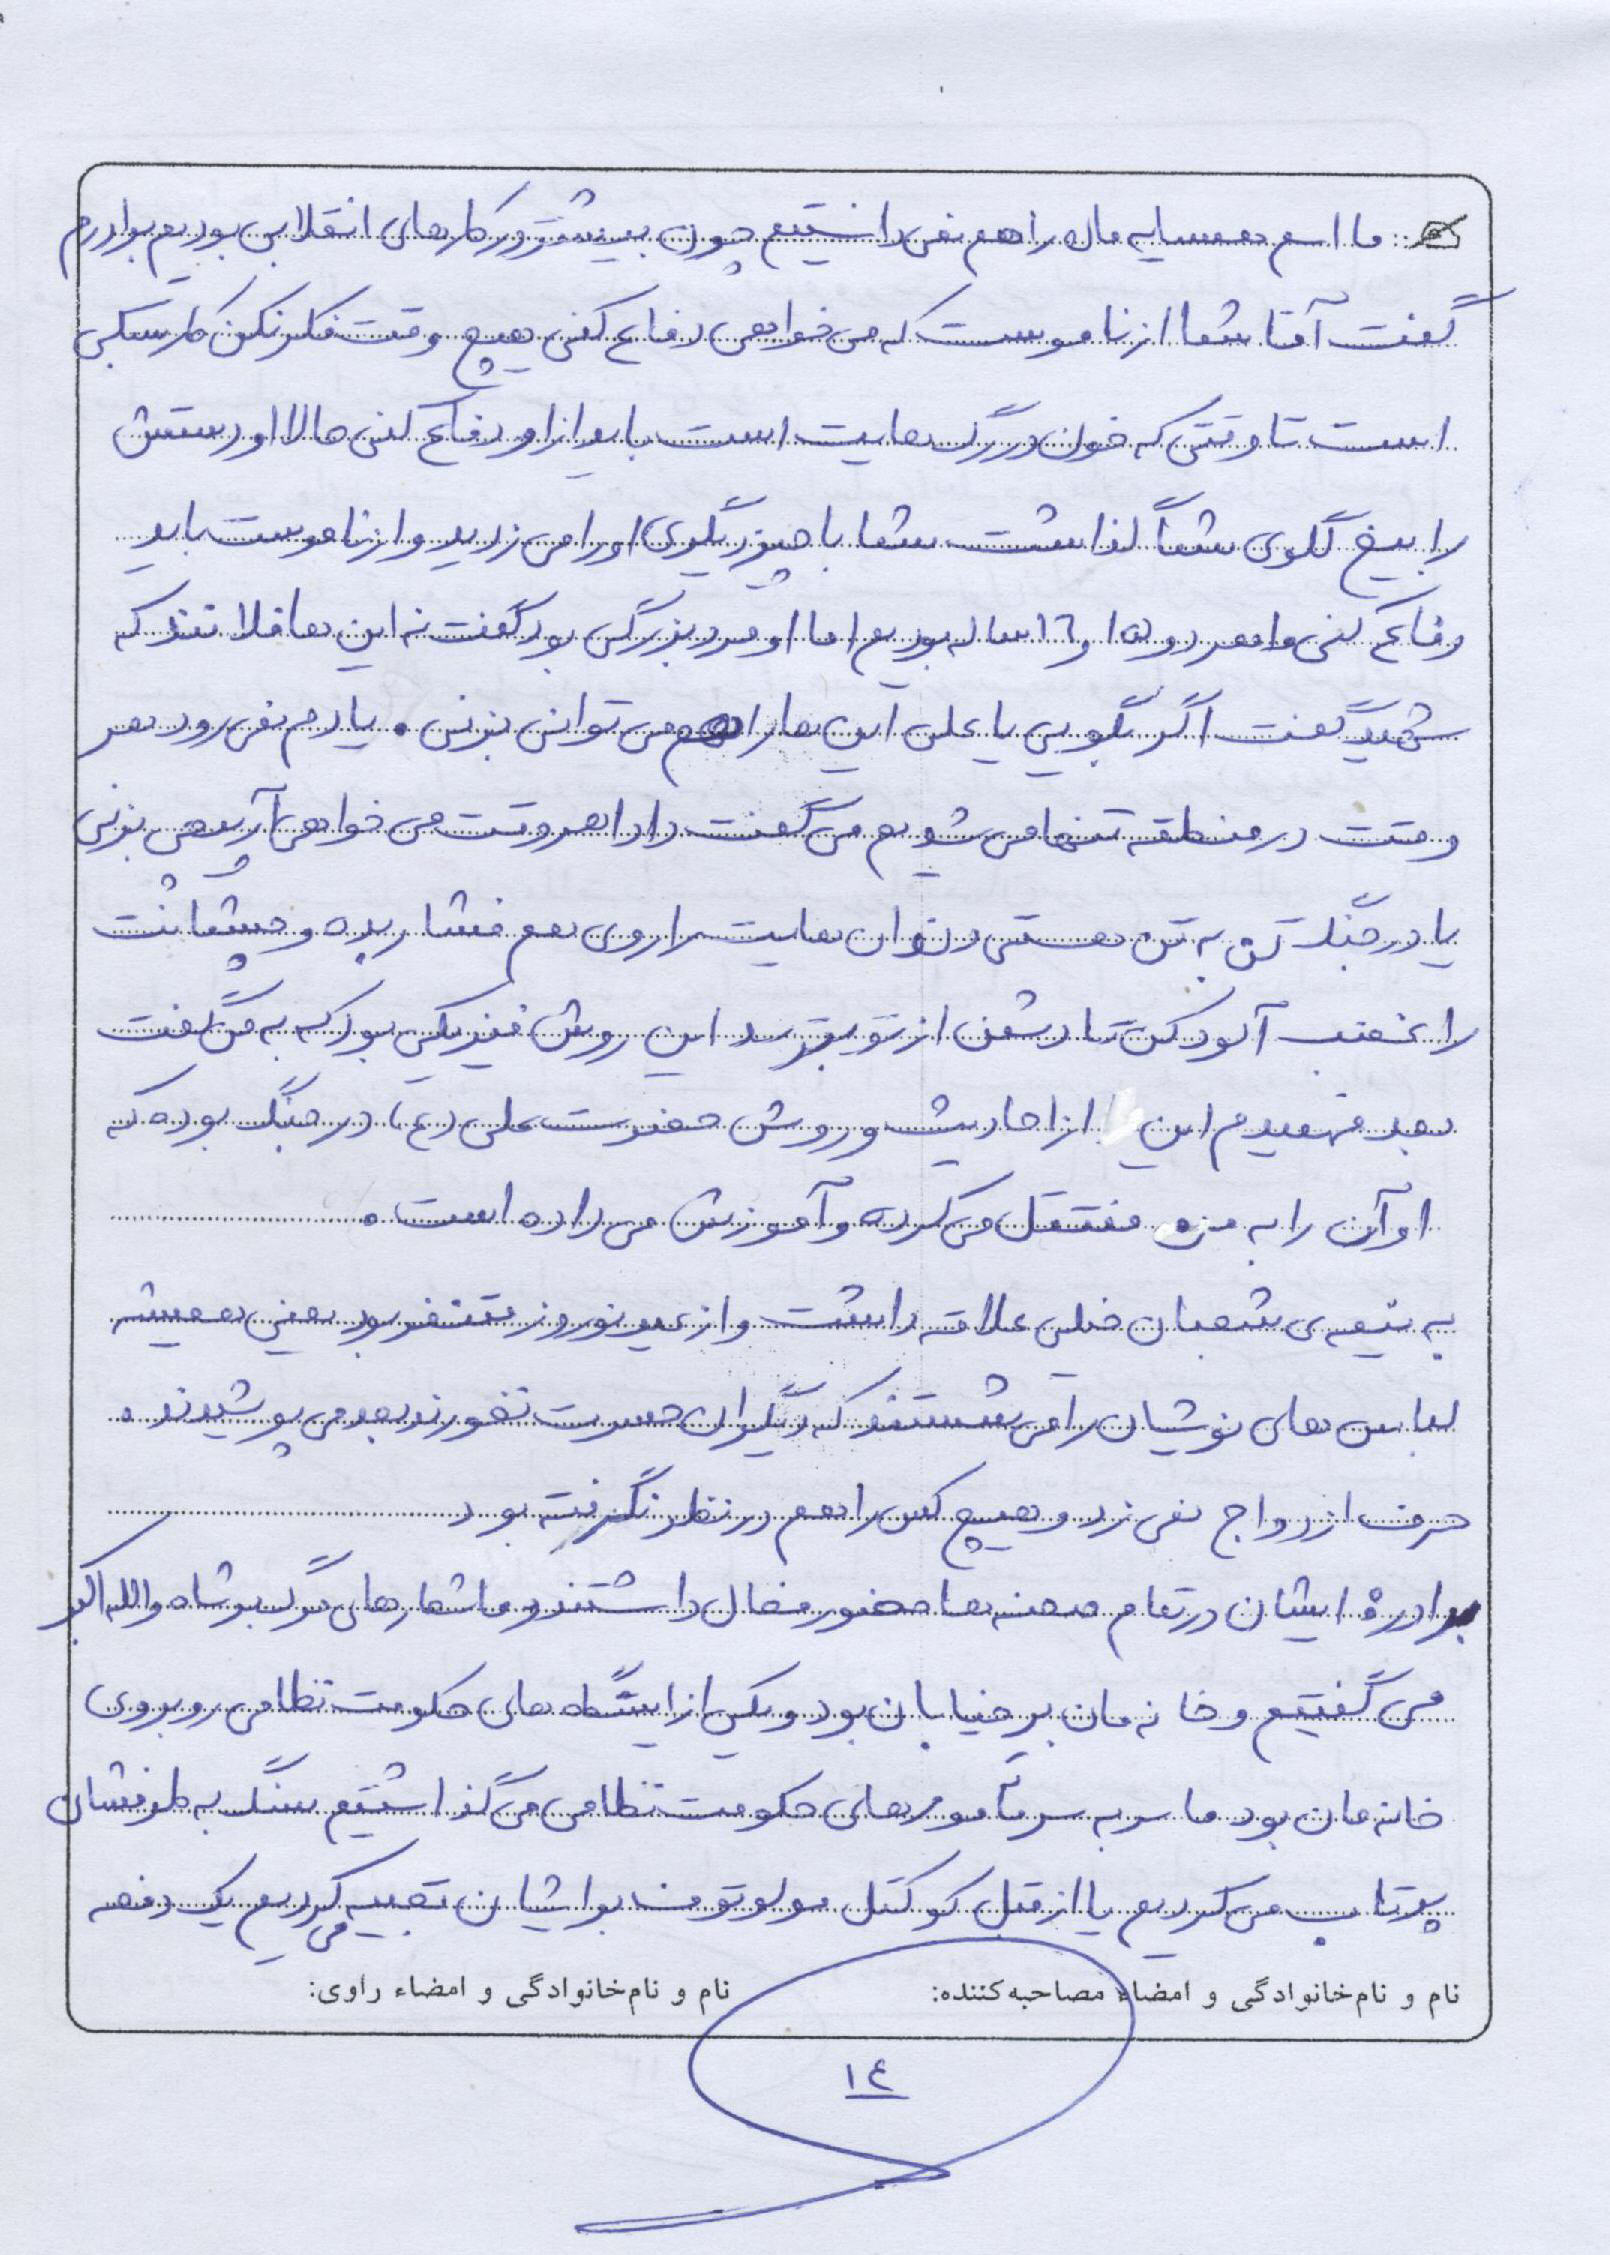 ما اسم همسایه مان را هم نمی دانستیم چون بیشتر در کارهای انقلابی بودیم برادرم
گفت آقا شما از ناموست که می خواهی دفاع کنی هیچ وقت فکر نکن کار سبکی
است تا وقتی که خون در رگ هایت است باید از او دفاع کنی حالا او دستش
را بیخ گلوی شما گذاشت شما با چیز دیگری او را می زدید و از ناموست باید
دفاع کنی ما هر دو ۱۵ و ۱٦ ساله بودیم اما او مرد بزرگی بود گفت نه این ها فلانند که
شهید گفت اگر بگویی یا علی این ها را هم می توانی بزنی . یادم نمی رود هر
وقت در منطقه تنها می شویم می گفت دادا هر وقت می خواهی آرپیجی بزنی
یا در جنگ تن به تن هستی دندان هایت را روی هم فشار بده و چشمانت
را غضب آلود کن تا دشمن از تو بترسد این روش فیزیکی بود که به من گفت
بعد فهمیدم این از احادیث و روش حضرت علی (ع) در جنگ بوده که
او آن را به من منتقل می کرده و آموزش می داده است .
به نیمه ی شعبان خیلی علاقه داشت و از عید نوروز متنفر بود یعنی همیشه
لباس های نوشیان را می شستند که دیگران حسرت نخورند بعد می پوشیدند .
حرف ازدواج نمی زد و هیچ کس را هم در نظر نگرفته بود
برادر ایشان در تمام صحنه ها حضور فعال داشتند و ما شعارهای مرگ بر شاه و الله اکبر
می گفتیم و خانه مان بر خیابان بود و یکی از ایستگاه های حکومت نظامی روبروی
خانه مان بود ما سر به سر مأمورهای حکومت نظامی می گذاشتیم سنگ به طرفشان
پرتاب می کردیم یا از قبل کوکتل مولوتوف برایشان تعبیه می کردیم یک دفعه
نام و نام‌خانوادگی و امضاء مصاحبه‌کننده: نام و نام‌خانوادگی و امضاء راوی:
١٤